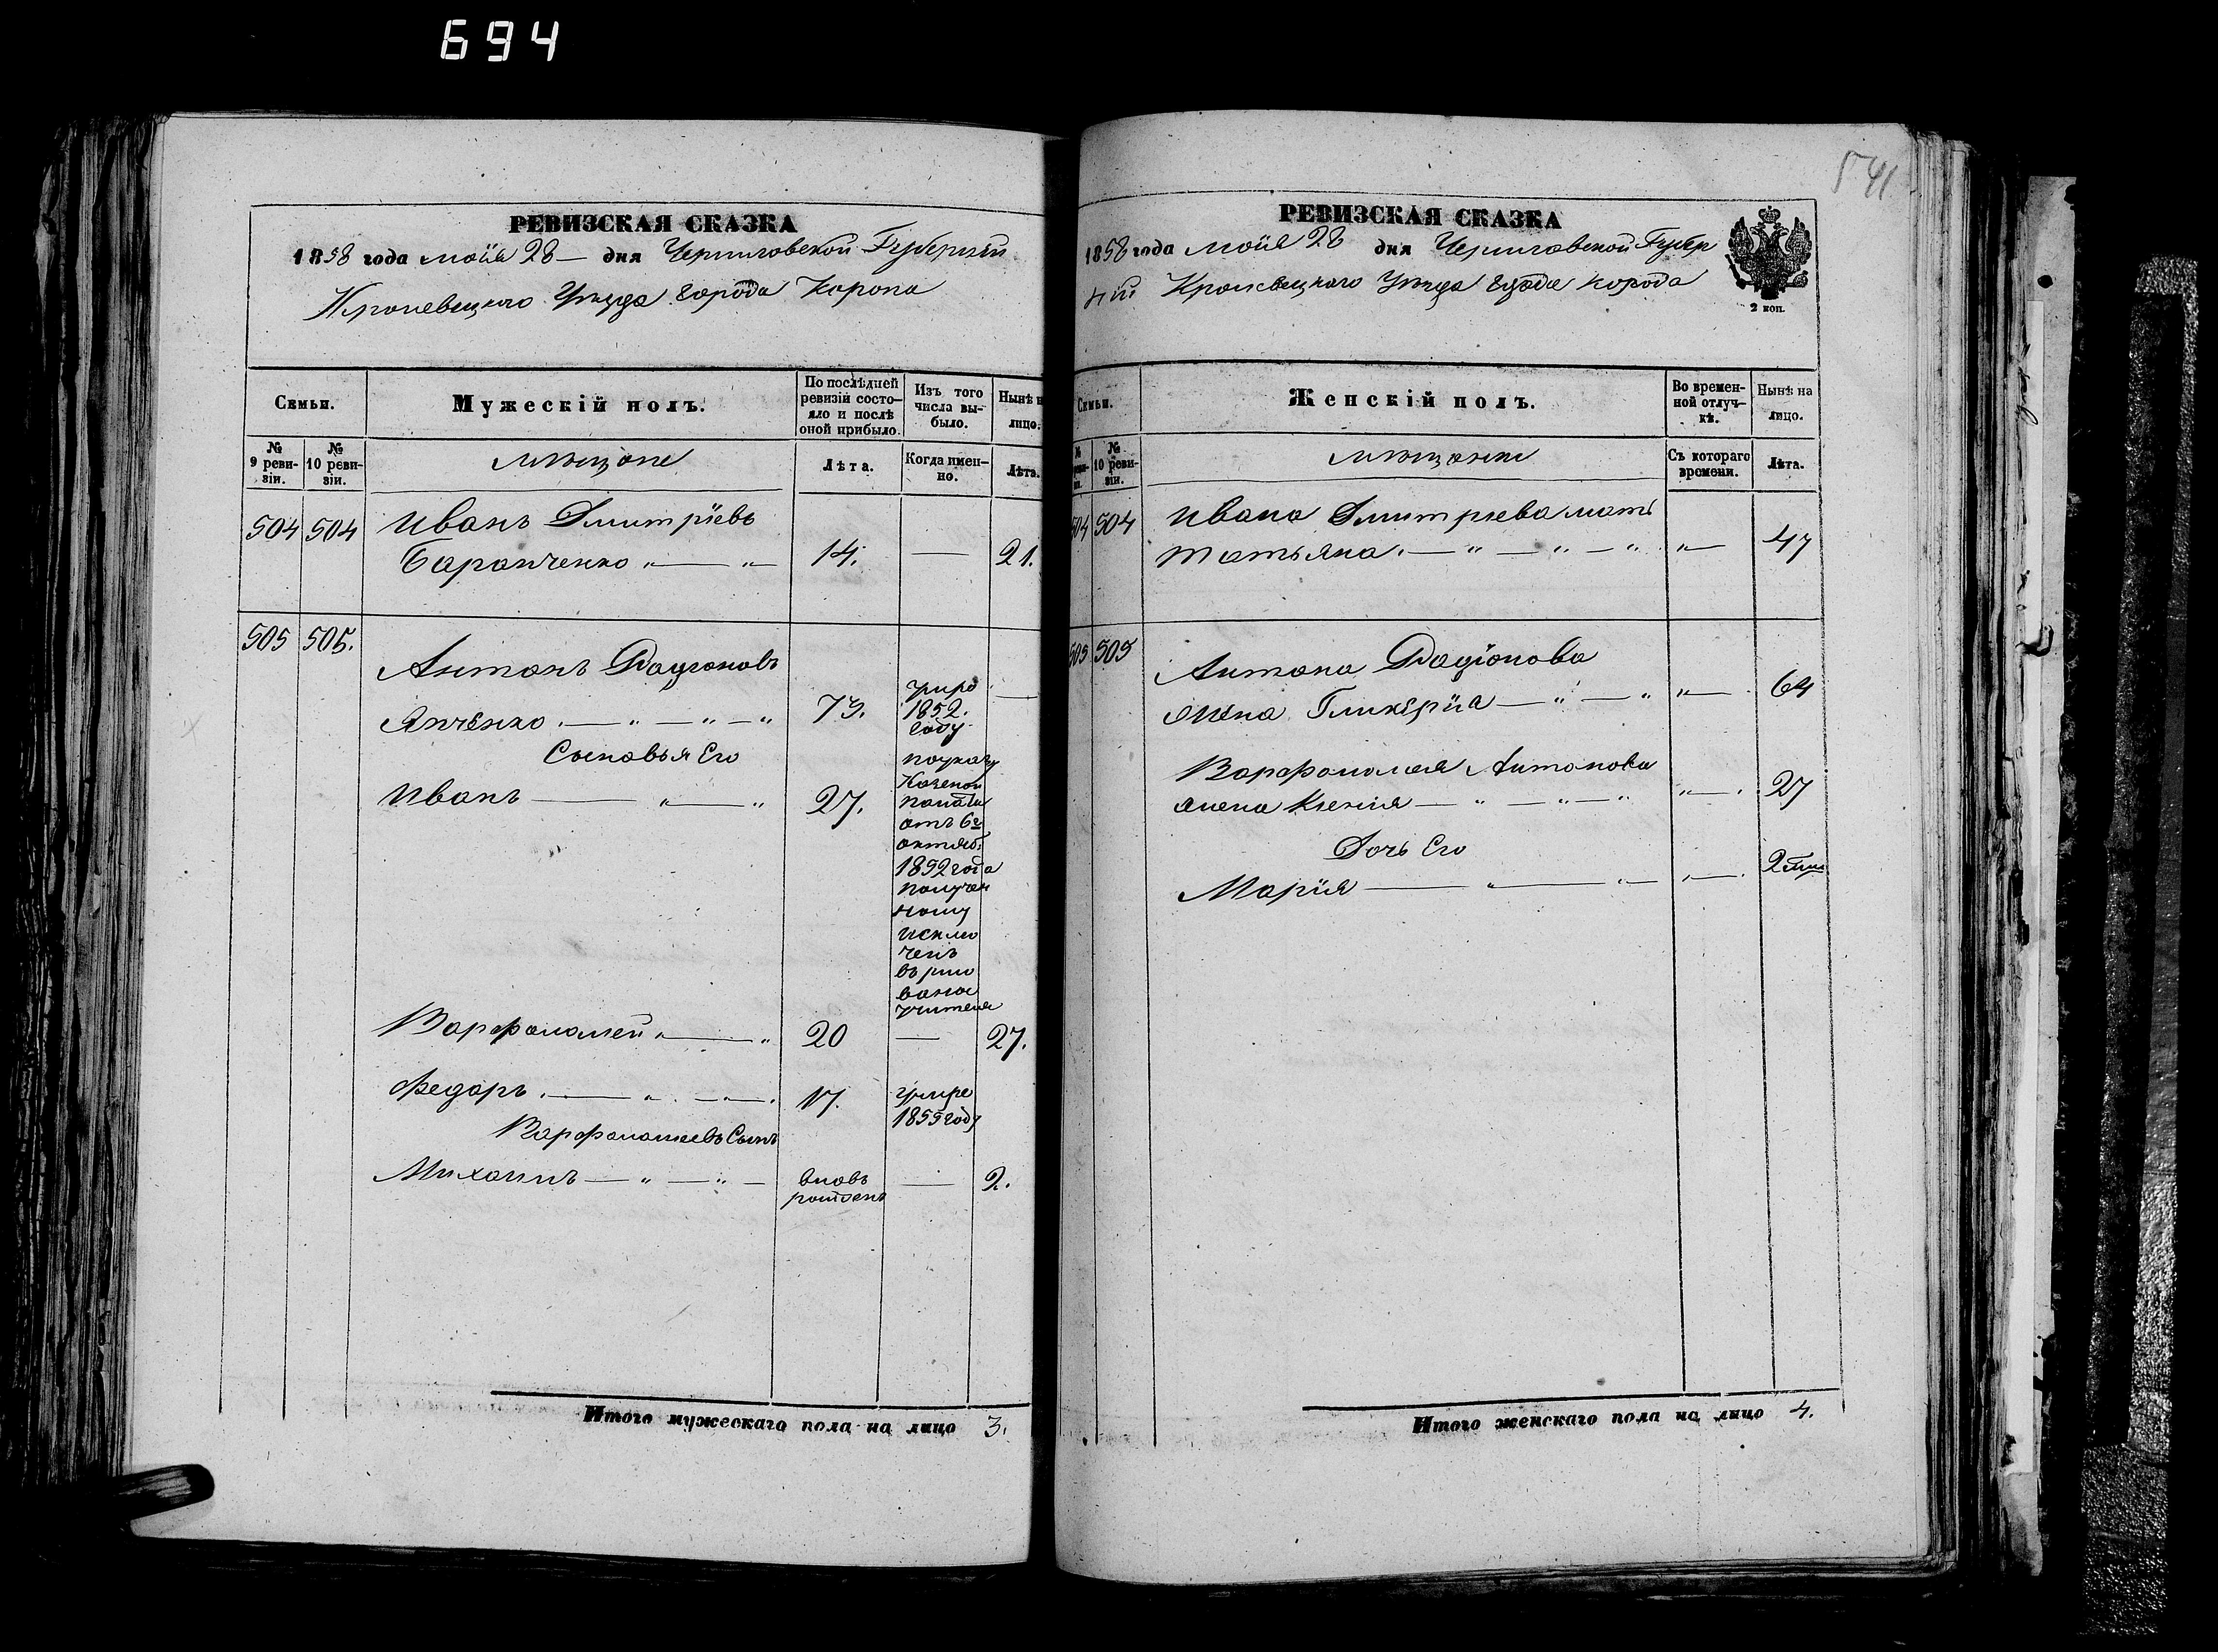 694
541
РЕВИЗСКАЯ СКАЗКА
1858 года маія 28 — дня Черниговской Губерніи
Кролевецкого Уезда города Коропа
Семьи.
Мужескій полъ.
По послѣдней ревизіи состояло и послѣ оной прибыло.
Изъ того числа выбыло.
Нынѣ н
лицо.
№ 9 ревизіи.
№ 10 ревизіи.
мѣщане
Лѣта.
Когда именно.
Лѣта.
504 504 Иванъ Дмитріевъ
Баранченко " — " 14. — 21.
505 505.
Антонъ Радионовъ
Янченко . — " — " — " 73. умре 1852. году —
Сыновья Его
Иванъ — " — " 27.
по указу
Казеной
палаты
отъ 6го
октяб.
1852 года
получен
ному
исклю
ченъ
въ рисо
ваніи
учителя
Варфоломей " — " 20 — 27.
Федоръ . — " . — " — . 17. умре 1855 году
Варфоломеевъ Сынъ
Михаилъ — " — " — вновь рожденъ — 2.
Итого мужескаго пола на лицо 3.
РЕВИЗСКАЯ СКАЗКА
1858 года маія 28 дня Черниговской Губер
ніи Кролевецкаго Уезда города Корода
2 коп.
Семьи.
Женскій полъ.
Во временной отлучкѣ.
Нынѣ на лицо.
№ 10 ревизіи.
мѣщанки
Съ котораго времени.
Лѣта.
504 504 Ивана Дмитриева мать
Татьяна . — " — " — " . " — 47
505 505
Антона Радіонова
жена Гликерія — " — " " — . 64
Варфоломея Антонова
жена Ксенія — " — " — " " — . 27
Дочь Его
Марія — " — " — " — . 2
Итого женскаго пола на лицо 4.